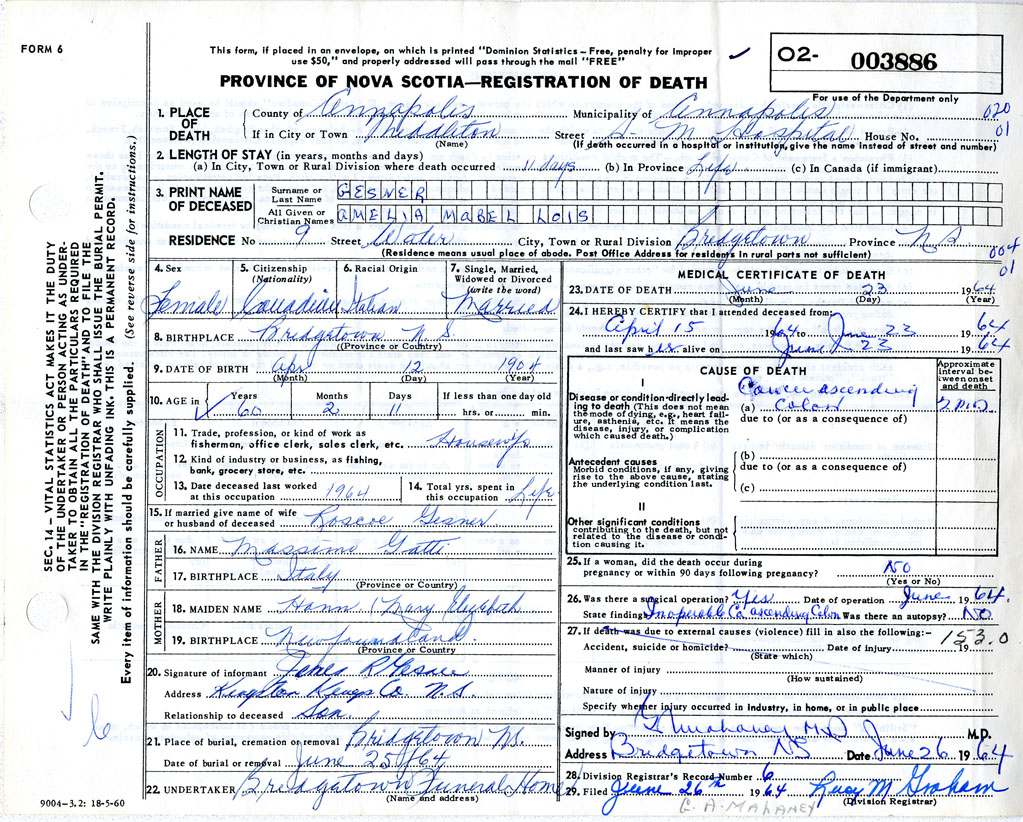 FORM 6
This form, if placed in an envelope, on which is printed "Dominion Statistics – Free, penalty for improper
use $50," and properly addressed will pass through the mail "FREE"
PROVINCE OF NOVA SCOTIA—REGISTRATION OF DEATH
O2- 003886
For use of the Department only
020
01
1. PLACE OF DEATH
County of Annapolis Municipality of Annapolis
If in City or Town Middleton Street S. M. Hospital House No.
(Name) (If death occurred in a hospital or institution, give the name instead of street and number)
2. LENGTH OF STAY (in years, months and days)
(a) In City, Town or Rural Division where death occurred 11 days (b) In Province Life (c) In Canada (if immigrant)
3. PRINT NAME OF DECEASED
Surname or Last Name GESNER
All Given or Christian Names AMELIA MABEL LOIS
RESIDENCE No 9 Street Water City, Town or Rural Division Bridgetown Province N S
(Residence means usual place of abode. Post Office Address for residents in rural parts not sufficient)
004
01
4. Sex Female
5. Citizenship (Nationality) Canadian
6. Racial Origin Italian
7. Single, Married, Widowed or Divorced (write the word) Married
8. BIRTHPLACE Bridgetown N. S.
(Province or Country)
9. DATE OF BIRTH Apr 12 1904
(Month) (Day) (Year)
10. AGE in Years 60 Months 2 Days 11 If less than one day old
hrs. or min.
OCCUPATION
11. Trade, profession, or kind of work as
fisherman, office clerk, sales clerk, etc. Housewife
12. Kind of industry or business, as fishing,
bank, grocery store, etc.
13. Date deceased last worked at this occupation 1964
14. Total yrs. spent in this occupation Life
15. If married give name of wife
or husband of deceased Roscoe Gesner
FATHER
16. NAME Massimo Gatti
17. BIRTHPLACE Italy
(Province or Country)
MOTHER
18. MAIDEN NAME Hann (Mary Elizabeth
19. BIRTHPLACE Newfoundland
(Province or Country
20. Signature of informant R Gesner
Address Kingston Kings Co N.S
Relationship to deceased Son.
21. Place of burial, cremation or removal Bridgetown NS.
Date of burial or removal June 25/64
22. UNDERTAKER Bridgetown Funeral Home
(Name and address)
MEDICAL CERTIFICATE OF DEATH
23. DATE OF DEATH June 23 1964
(Month) (Day) (Year)
24. I HEREBY CERTIFY that I attended deceased from:
April 15 1964 to June 23 1964
and last saw her alive on June 23 1964
CAUSE OF DEATH
Approximate interval between onset and death
I
Disease or condition directly leading to death (This does not mean the mode of dying, e.g., heart failure, asthenia, etc. It means the disease, injury, or complication which caused death.)
(a) Cancer ascending Colon 2 mos
due to (or as a consequence of)
Antecedent causes
Morbid conditions, if any, giving rise to the above cause, stating the underlying condition last.
(b)
due to (or as a consequence of)
(c)
II
Other significant conditions
contributing to the death, but not related to the disease or condition causing it.
25. If a woman, did the death occur during
pregnancy or within 90 days following pregnancy? NO
(Yes or No)
26. Was there a surgical operation? Yes Date of operation June 1964.
State findings Inoperable Ca ascending Colon Was there an autopsy? NO
27. If death was due to external causes (violence) fill in also the following:– 153.0
Accident, suicide or homicide? Date of injury 19
(State which)
Manner of injury
(How sustained)
Nature of injury
Specify whether injury occurred in industry, in home, or in public place
Signed by G A Mahaney M.D M.D.
Address Bridgetown NS Date June 26 1964
28. Division Registrar's Record Number 6
29. Filed June 26th 1964 Lucy M Graham
G. A. MAHANEY (Division Registrar)
SEC. 14 – VITAL STATISTICS ACT MAKES IT THE DUTY
OF THE UNDERTAKER OR PERSON ACTING AS UNDER-
TAKER TO OBTAIN ALL THE PARTICULARS REQUIRED
IN THE "REGISTRATION OF DEATH" AND TO FILE THE
SAME WITH THE DIVISION REGISTRAR WHO SHALL ISSUE THE BURIAL PERMIT.
WRITE PLAINLY WITH UNFADING INK. THIS IS A PERMANENT RECORD.
Every item of information should be carefully supplied. (See reverse side for instructions.)
6
9004–3.2: 18-5-60